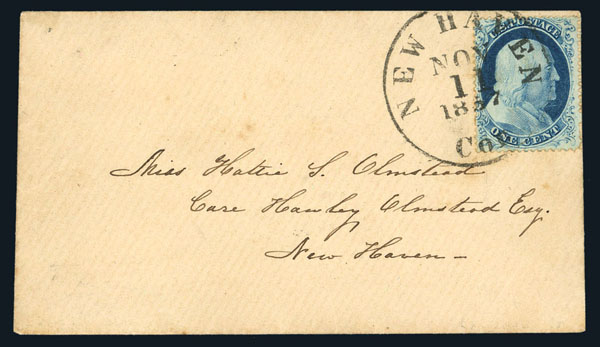 NEW HAVEN
NOV
11
1857
Co
U.S. POSTAGE
ONE CENT
Miss Hattie S. Olmstead
Care Hawley Olmstead Esq.
New Haven -